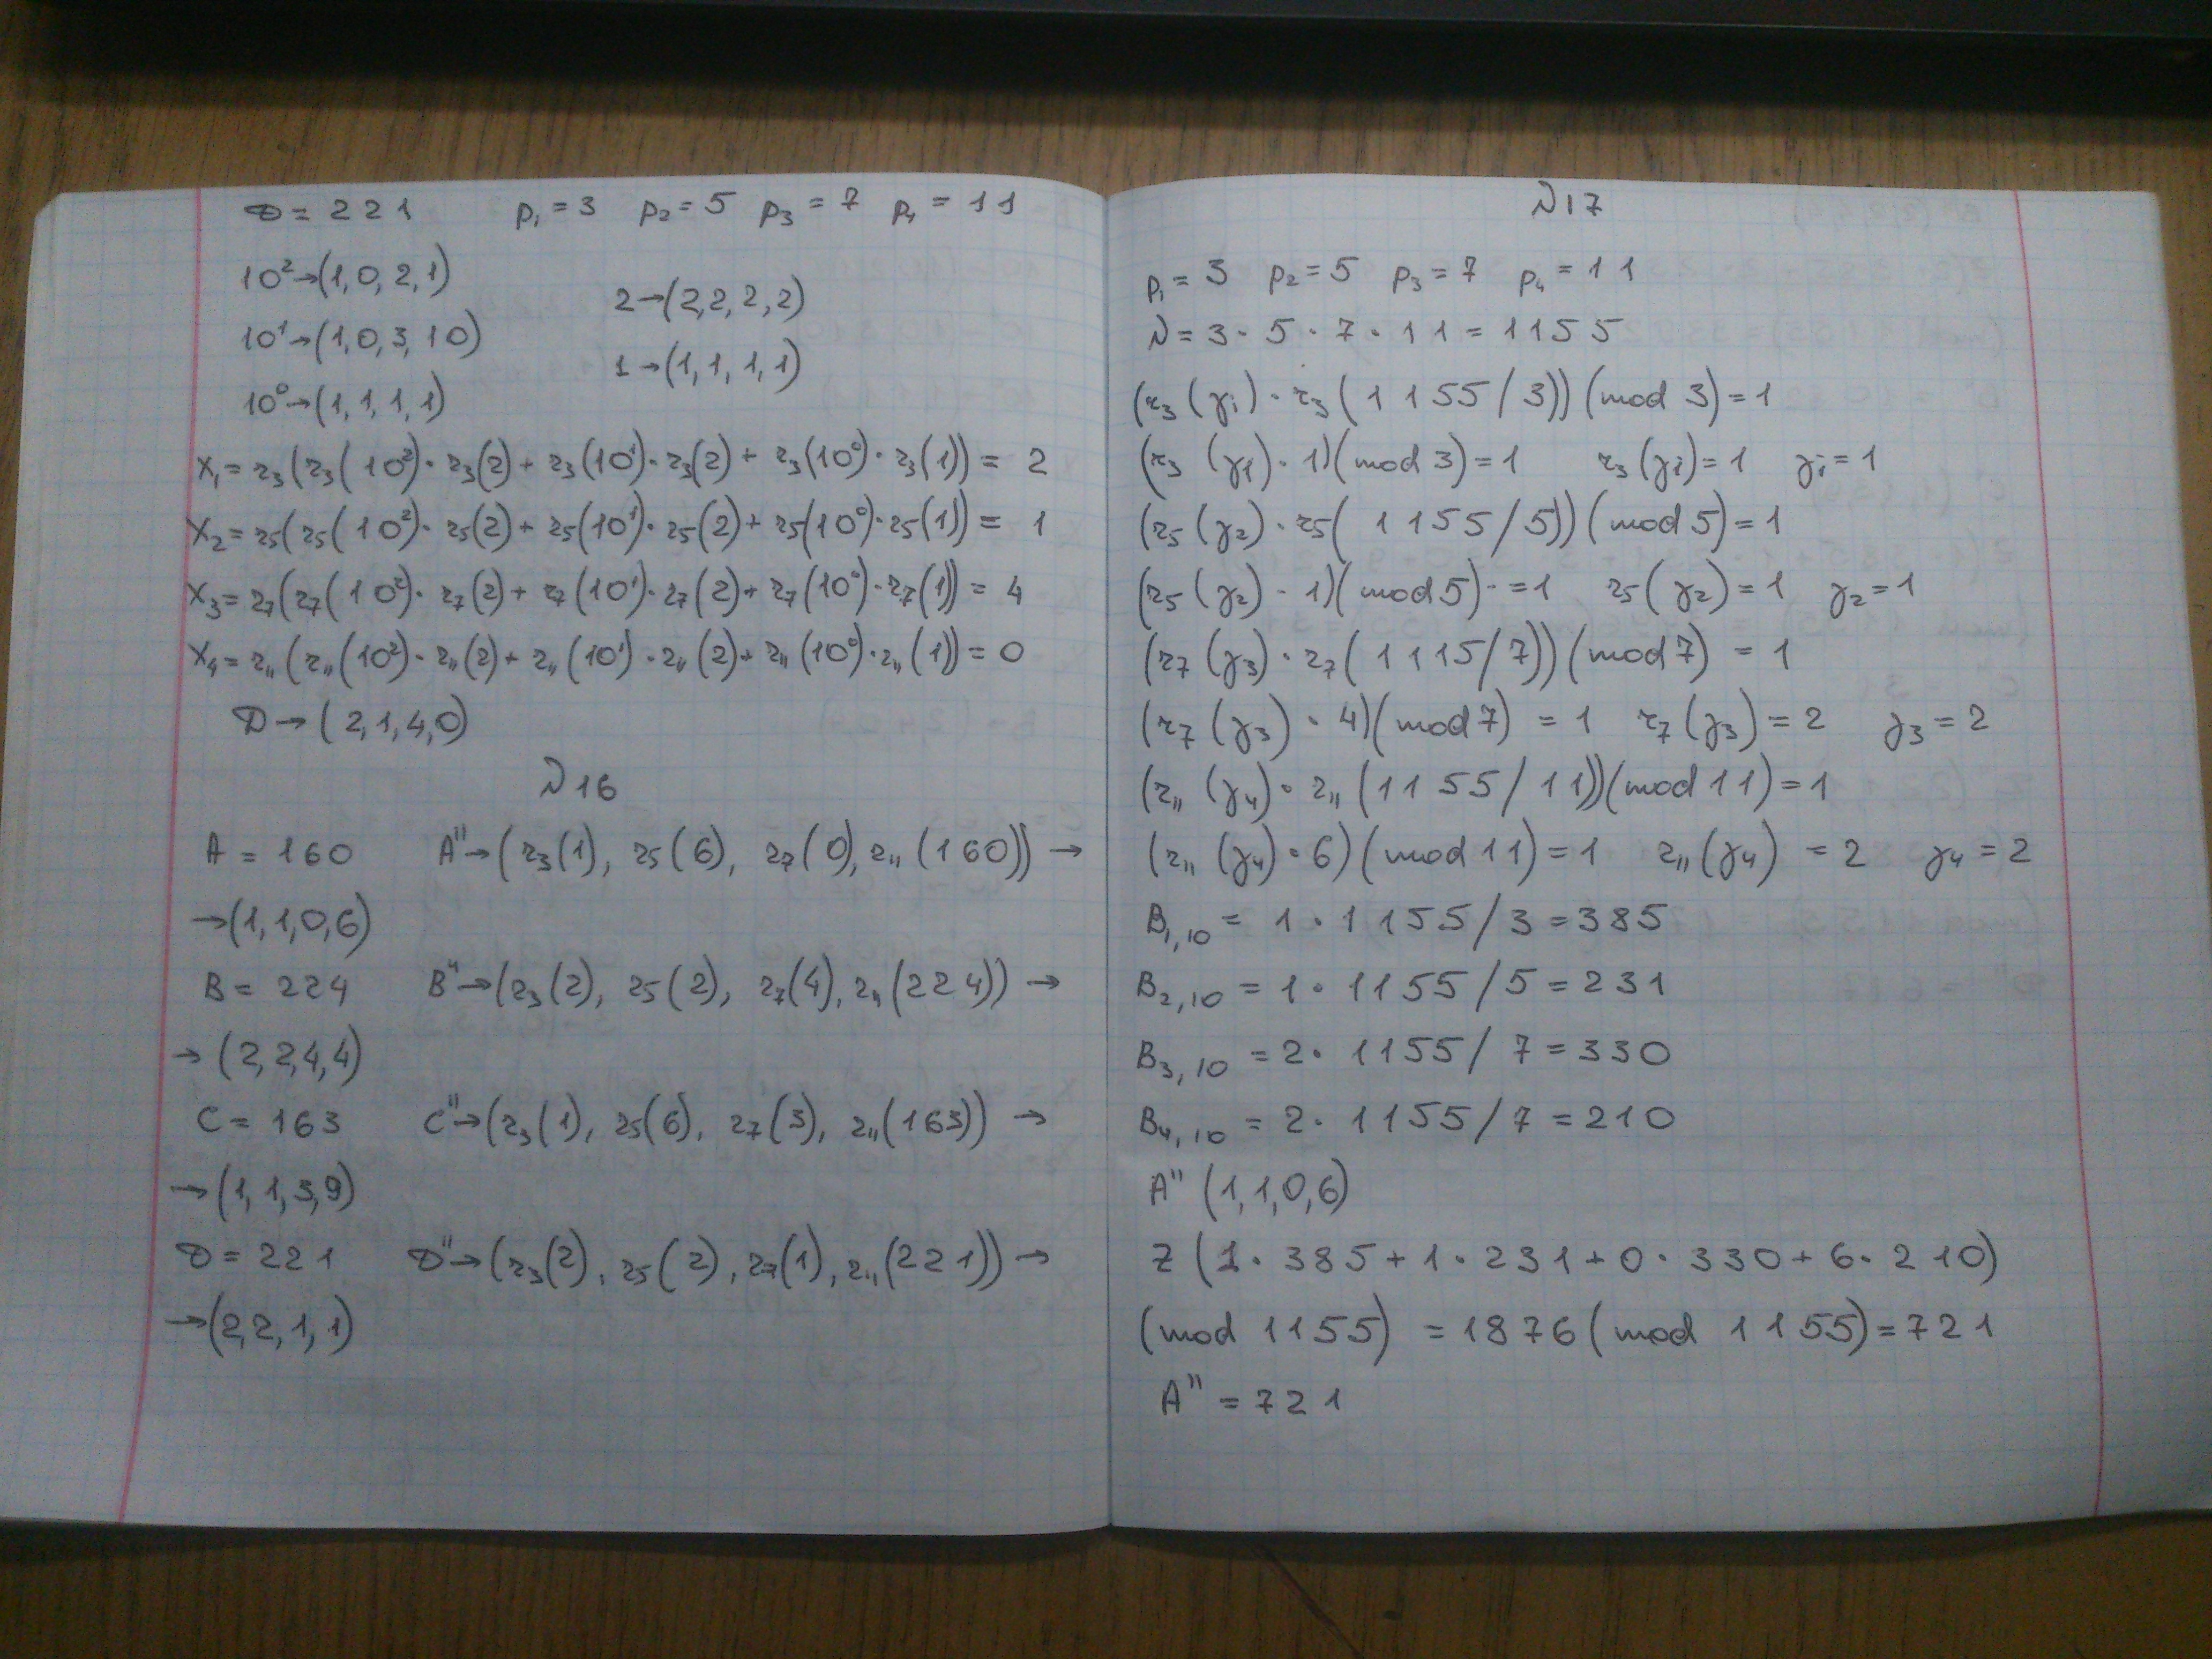 D = 221 p₁ = 3 p₂ = 5 p₃ = 7 p₄ = 11
10² → (1, 0, 2, 1)
2 → (2, 2, 2, 2)
10¹ → (1, 0, 3, 10)
1 → (1, 1, 1, 1)
10⁰ → (1, 1, 1, 1)
X₁ = r₃(r₃(10²)·r₃(2) + r₃(10¹)·r₃(2) + r₃(10⁰)·r₃(1)) = 2
X₂ = r₅(r₅(10²)·r₅(2) + r₅(10¹)·r₅(2) + r₅(10⁰)·r₅(1)) = 1
X₃ = r₇(r₇(10²)·r₇(2) + r₇(10¹)·r₇(2) + r₇(10⁰)·r₇(1)) = 4
X₄ = r₁₁(r₁₁(10²)·r₁₁(2) + r₁₁(10¹)·r₁₁(2) + r₁₁(10⁰)·r₁₁(1)) = 0
D → (2, 1, 4, 0)
N 16
A = 160 A" → (r₃(1), r₅(6), r₇(0), r₁₁(160)) →
→ (1, 1, 0, 6)
B = 224 B" → (r₃(2), r₅(2), r₇(4), r₁₁(224)) →
→ (2, 2, 4, 4)
C = 163 C" → (r₃(1), r₅(6), r₇(3), r₁₁(163)) →
→ (1, 1, 3, 9)
D = 221 D" → (r₃(2), r₅(2), r₇(1), r₁₁(221)) →
→ (2, 2, 1, 1)
N 17
p₁ = 3 p₂ = 5 p₃ = 7 p₄ = 11
N = 3 · 5 · 7 · 11 = 1155
(r₃(γ₁) · r₃(1155/3))(mod 3) = 1
(r₃(γ₁) · 1)(mod 3) = 1 r₃(γ₁) = 1 γ₁ = 1
(r₅(γ₂) · r₅(1155/5))(mod 5) = 1
(r₅(γ₂) · 1)(mod 5) · = 1 r₅(γ₂) = 1 γ₂ = 1
(r₇(γ₃) · r₇(1115/7))(mod 7) = 1
(r₇(γ₃) · 4)(mod 7) = 1 r₇(γ₃) = 2 γ₃ = 2
(r₁₁(γ₄) · r₁₁(1155/11))(mod 11) = 1
(r₁₁(γ₄) · 6)(mod 11) = 1 r₁₁(γ₄) = 2 γ₄ = 2
B₁,₁₀ = 1 · 1155/3 = 385
B₂,₁₀ = 1 · 1155/5 = 231
B₃,₁₀ = 2 · 1155/7 = 330
B₄,₁₀ = 2 · 1155/7 = 210
A" (1, 1, 0, 6)
Z (1 · 385 + 1 · 231 + 0 · 330 + 6 · 210)
(mod 1155) = 1876 (mod 1155) = 721
A" = 721